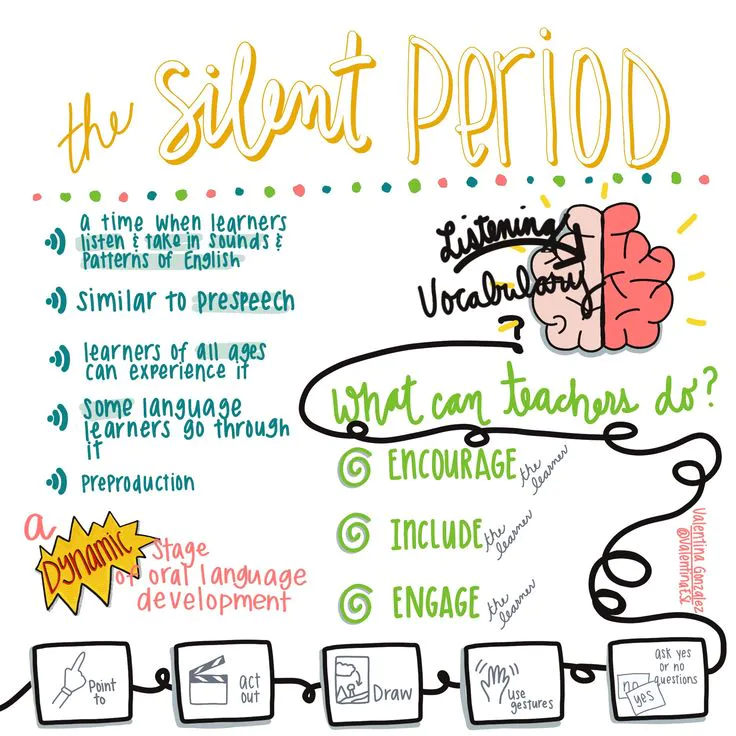 the Silent Period
a time when learners
listen & take in sounds &
patterns of English
similar to prespeech
learners of all ages
can experience it
some language
learners go through
it
preproduction
a
Dynamic stage
of oral language
development
Listening
Vocabulary
?
What can teachers do?
ENCOURAGE the learner
INCLUDE the learner
ENGAGE the learner
Valentina Gonzalez
@ValentinaESL
Point
to
act
out
Draw
use
gestures
ask yes
or no
questions
no
yes